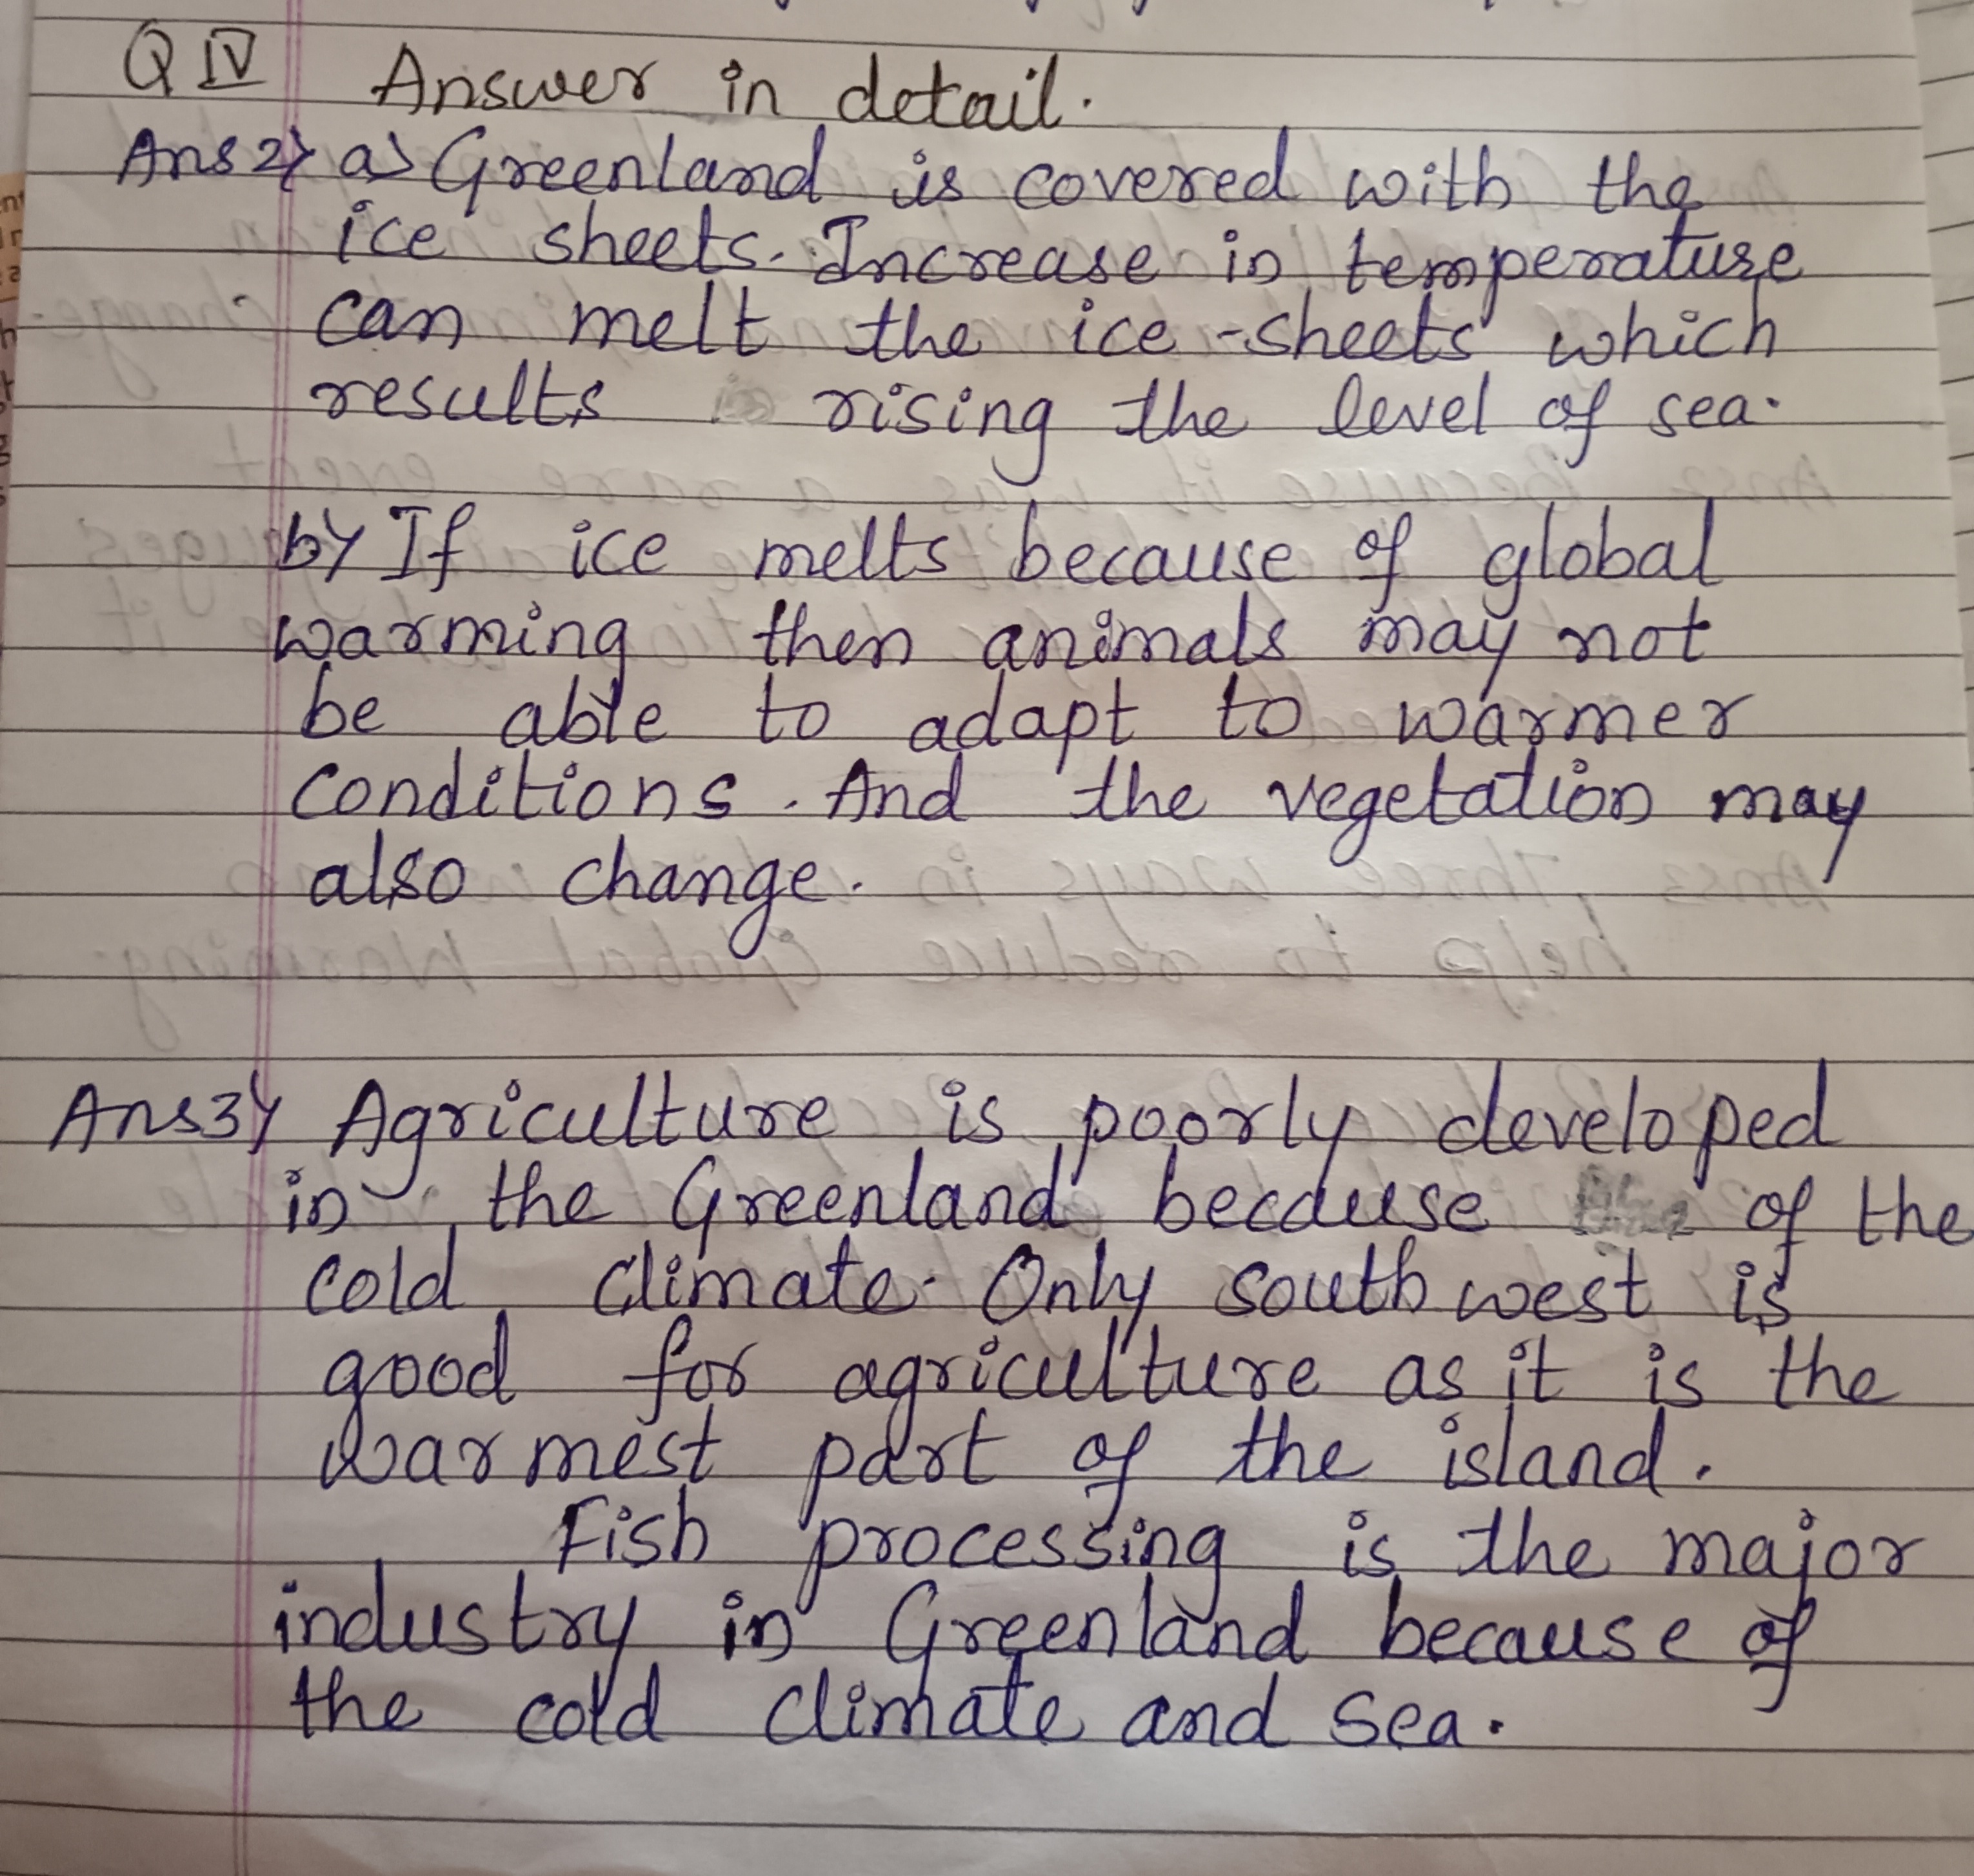 Q IV Answer in detail.
Ans 2) a) Greenland is covered with the
ice sheets. Increase in temperature
can melt the ice-sheets which
results rising the level of sea.
b) If ice melts because of global
warming then animals may not
be able to adapt to warmer
conditions. And the vegetation may
also change.
Ans3) Agriculture is poorly developed
in the Greenland because of the
cold climate. Only south west is
good for agriculture as it is the
warmest part of the island.
Fish processing is the major
industry in Greenland because of
the cold climate and sea.